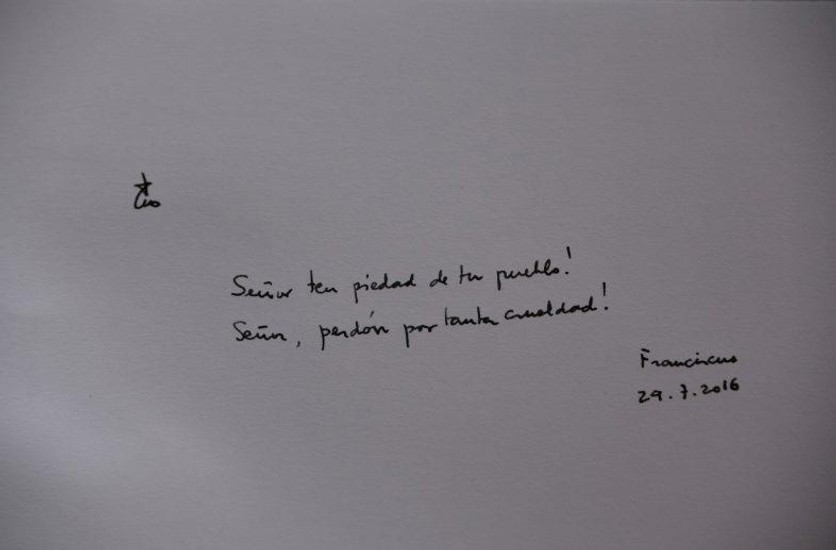 Señor ten piedad de tu pueblo!
Señor, perdón por tanta crueldad!
Franciscus
29.7.2016